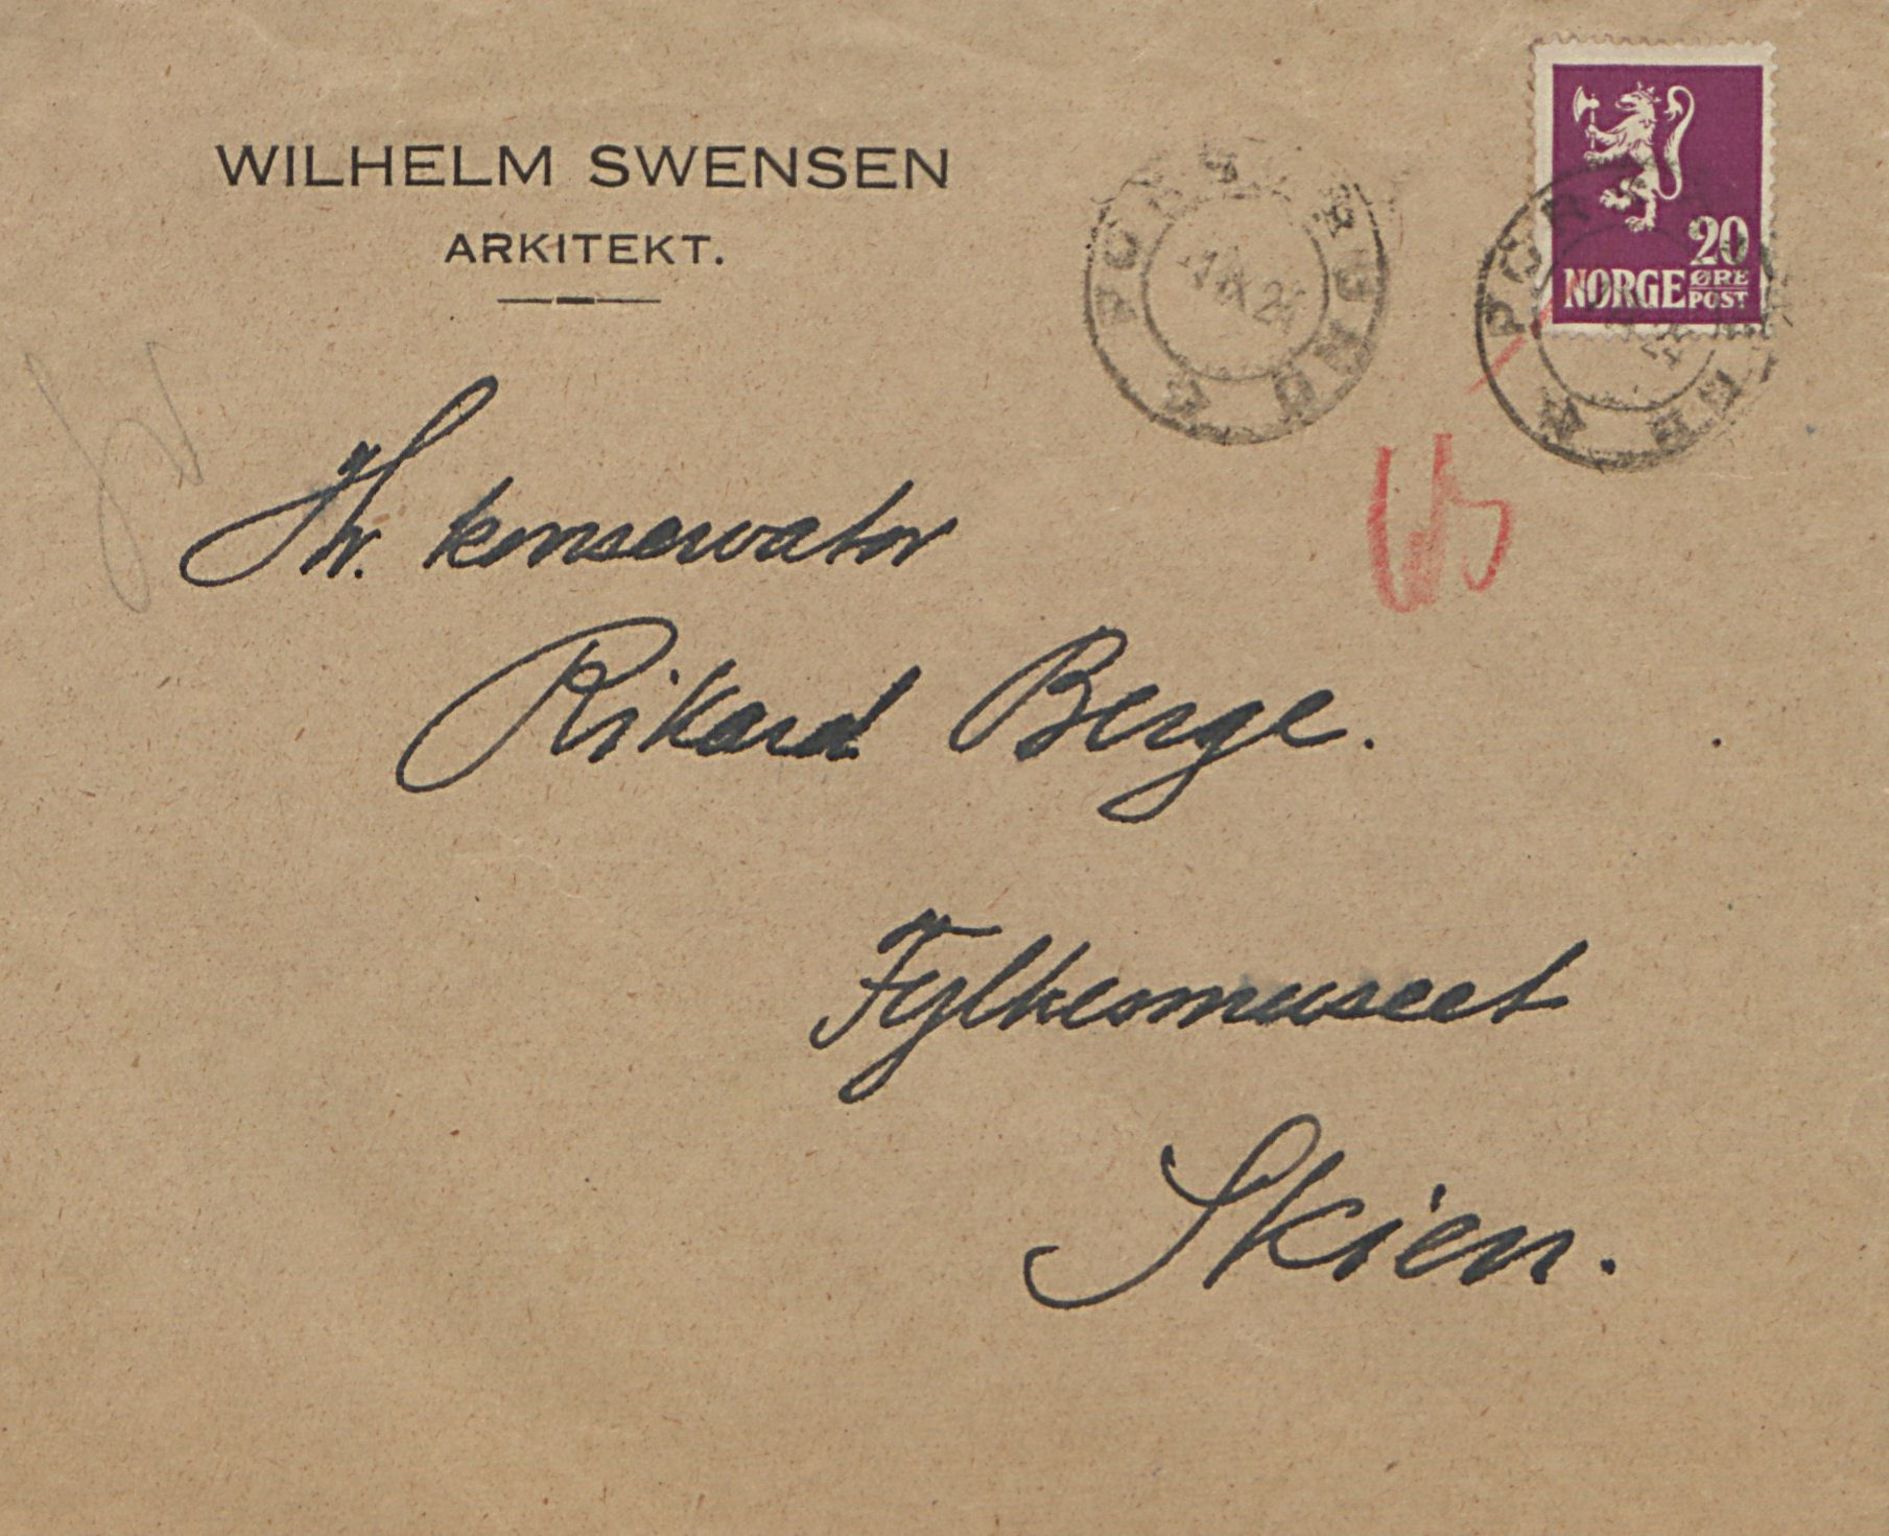 WILHELM SWENSEN
ARKITEKT.
20
NORGE ØRE
POST
PORSGRUND
Hr. konservator
Rikard Berge.
Fylkesmuseet
Skien.